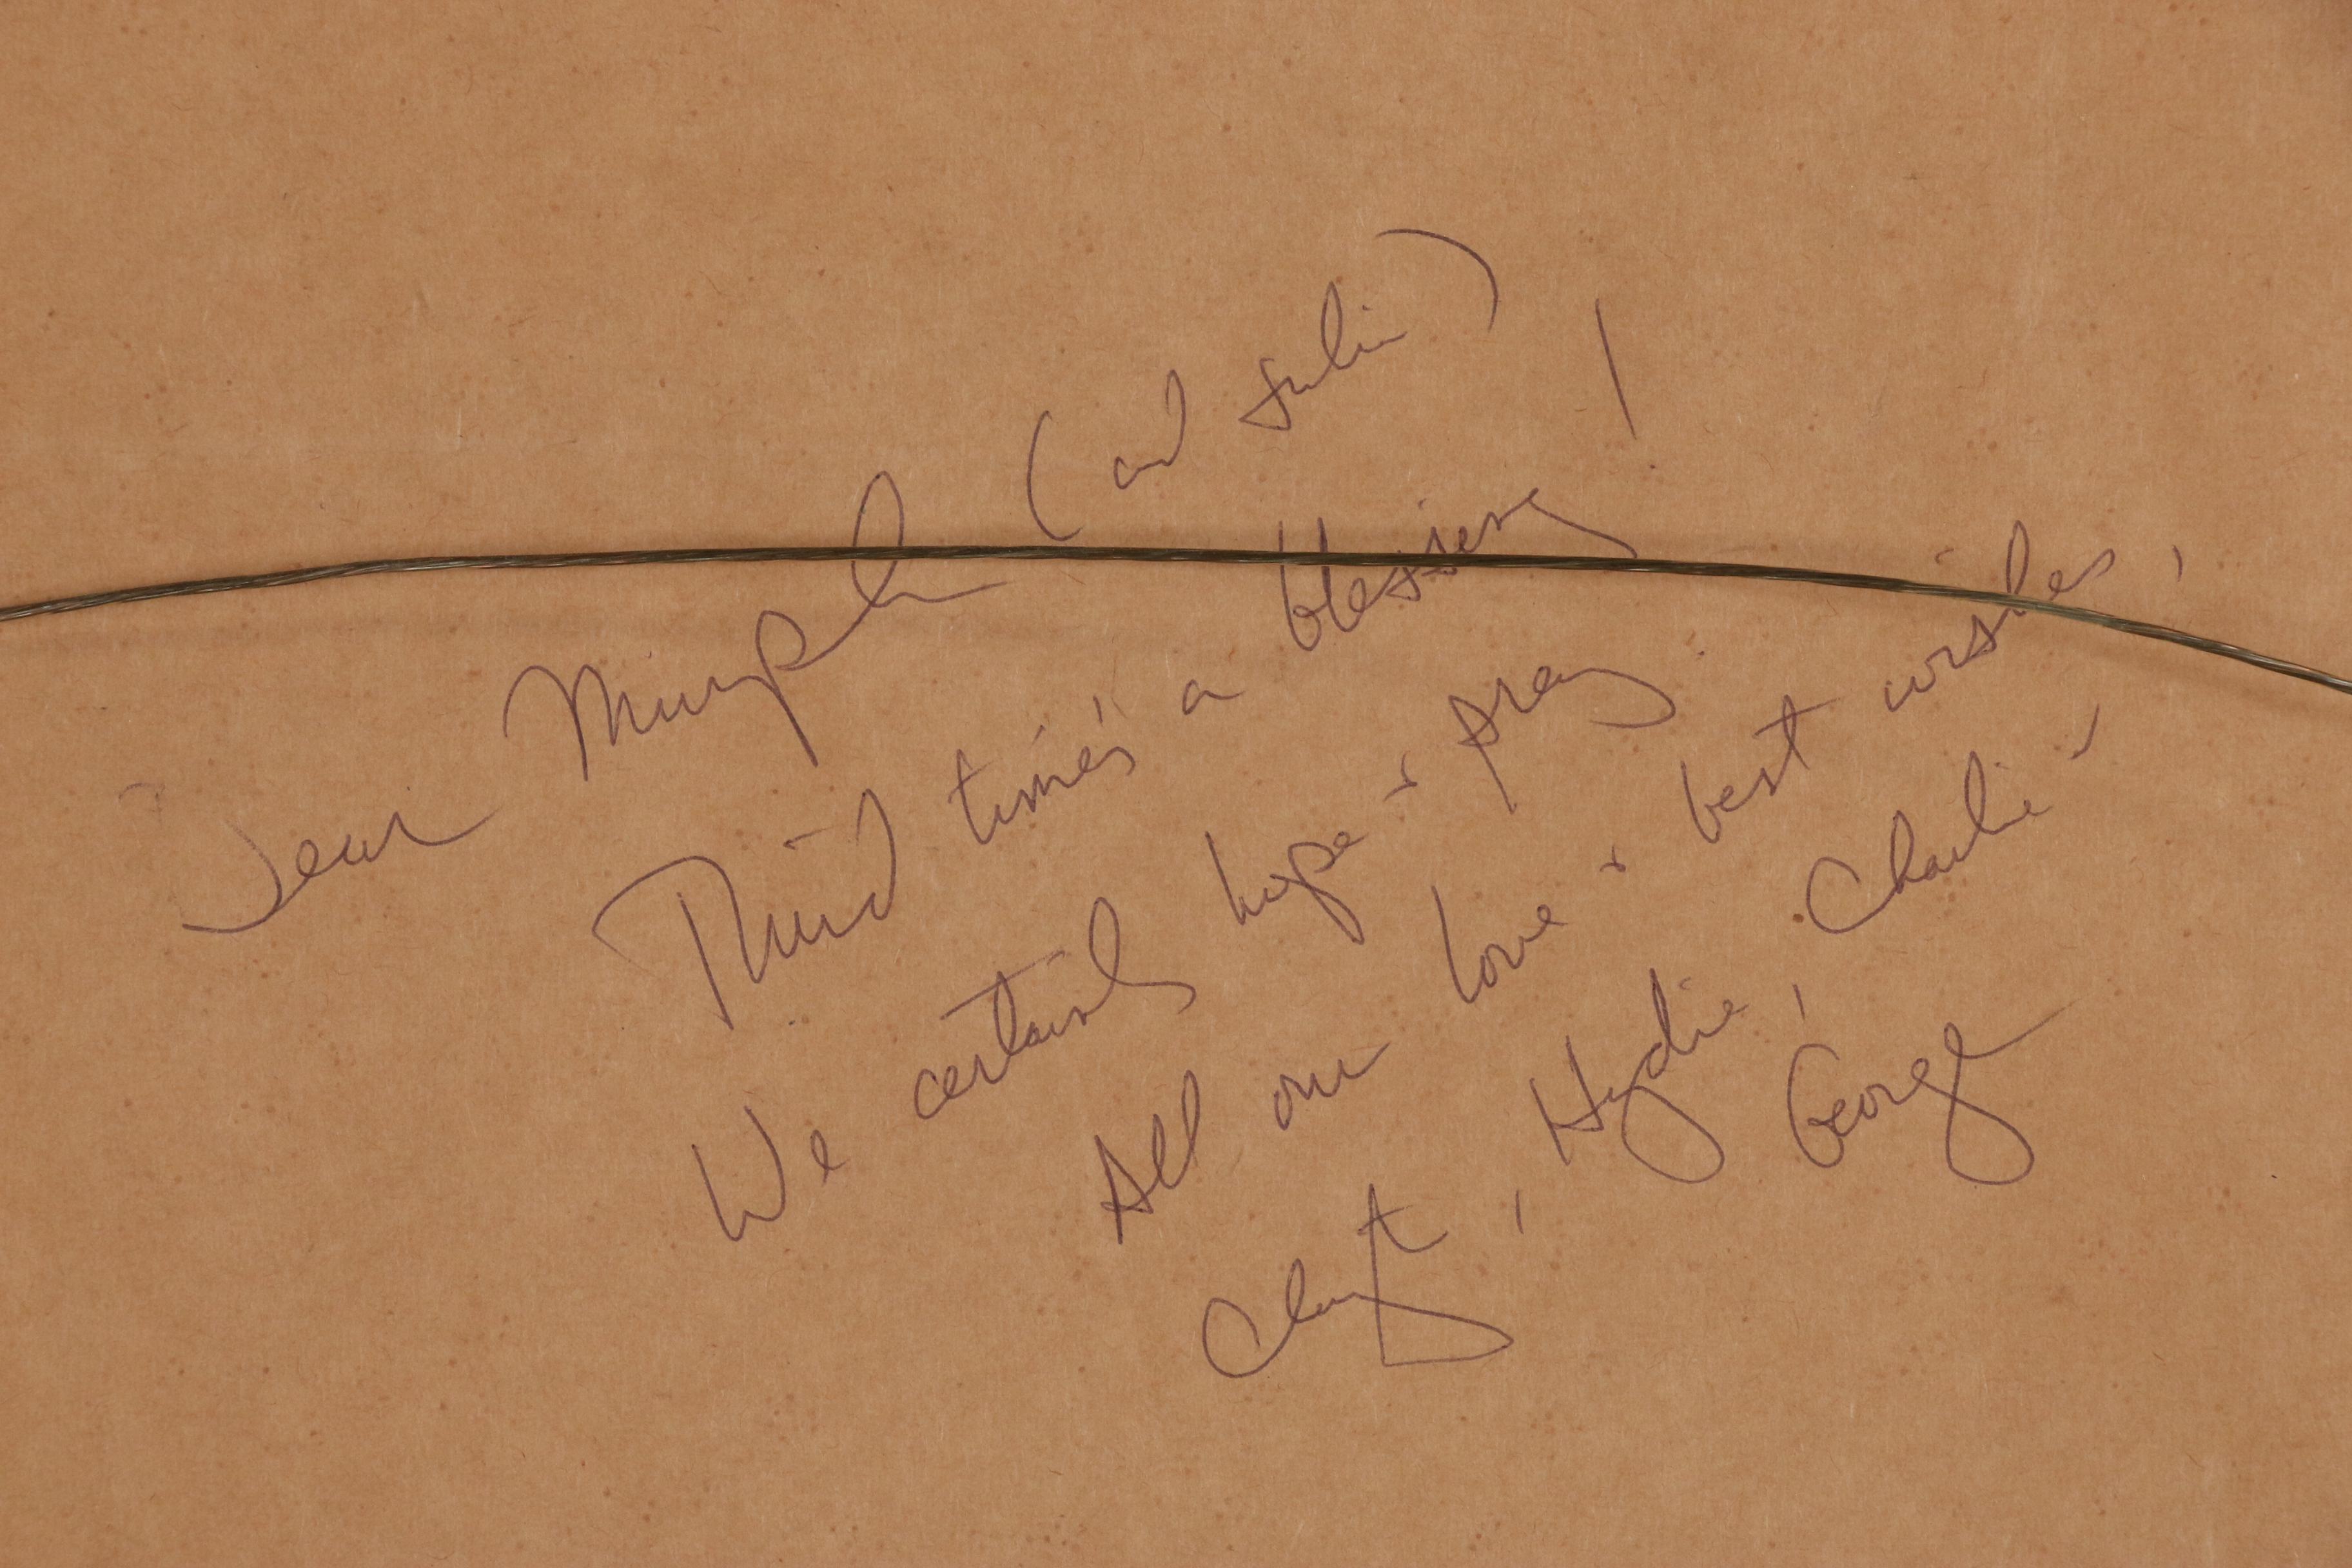 Dear Murph (and Julie)
Third time's a blessing!
We certainly hope & pray.
All our love & best wishes,
Clayt, Hydie, Charlie &
George